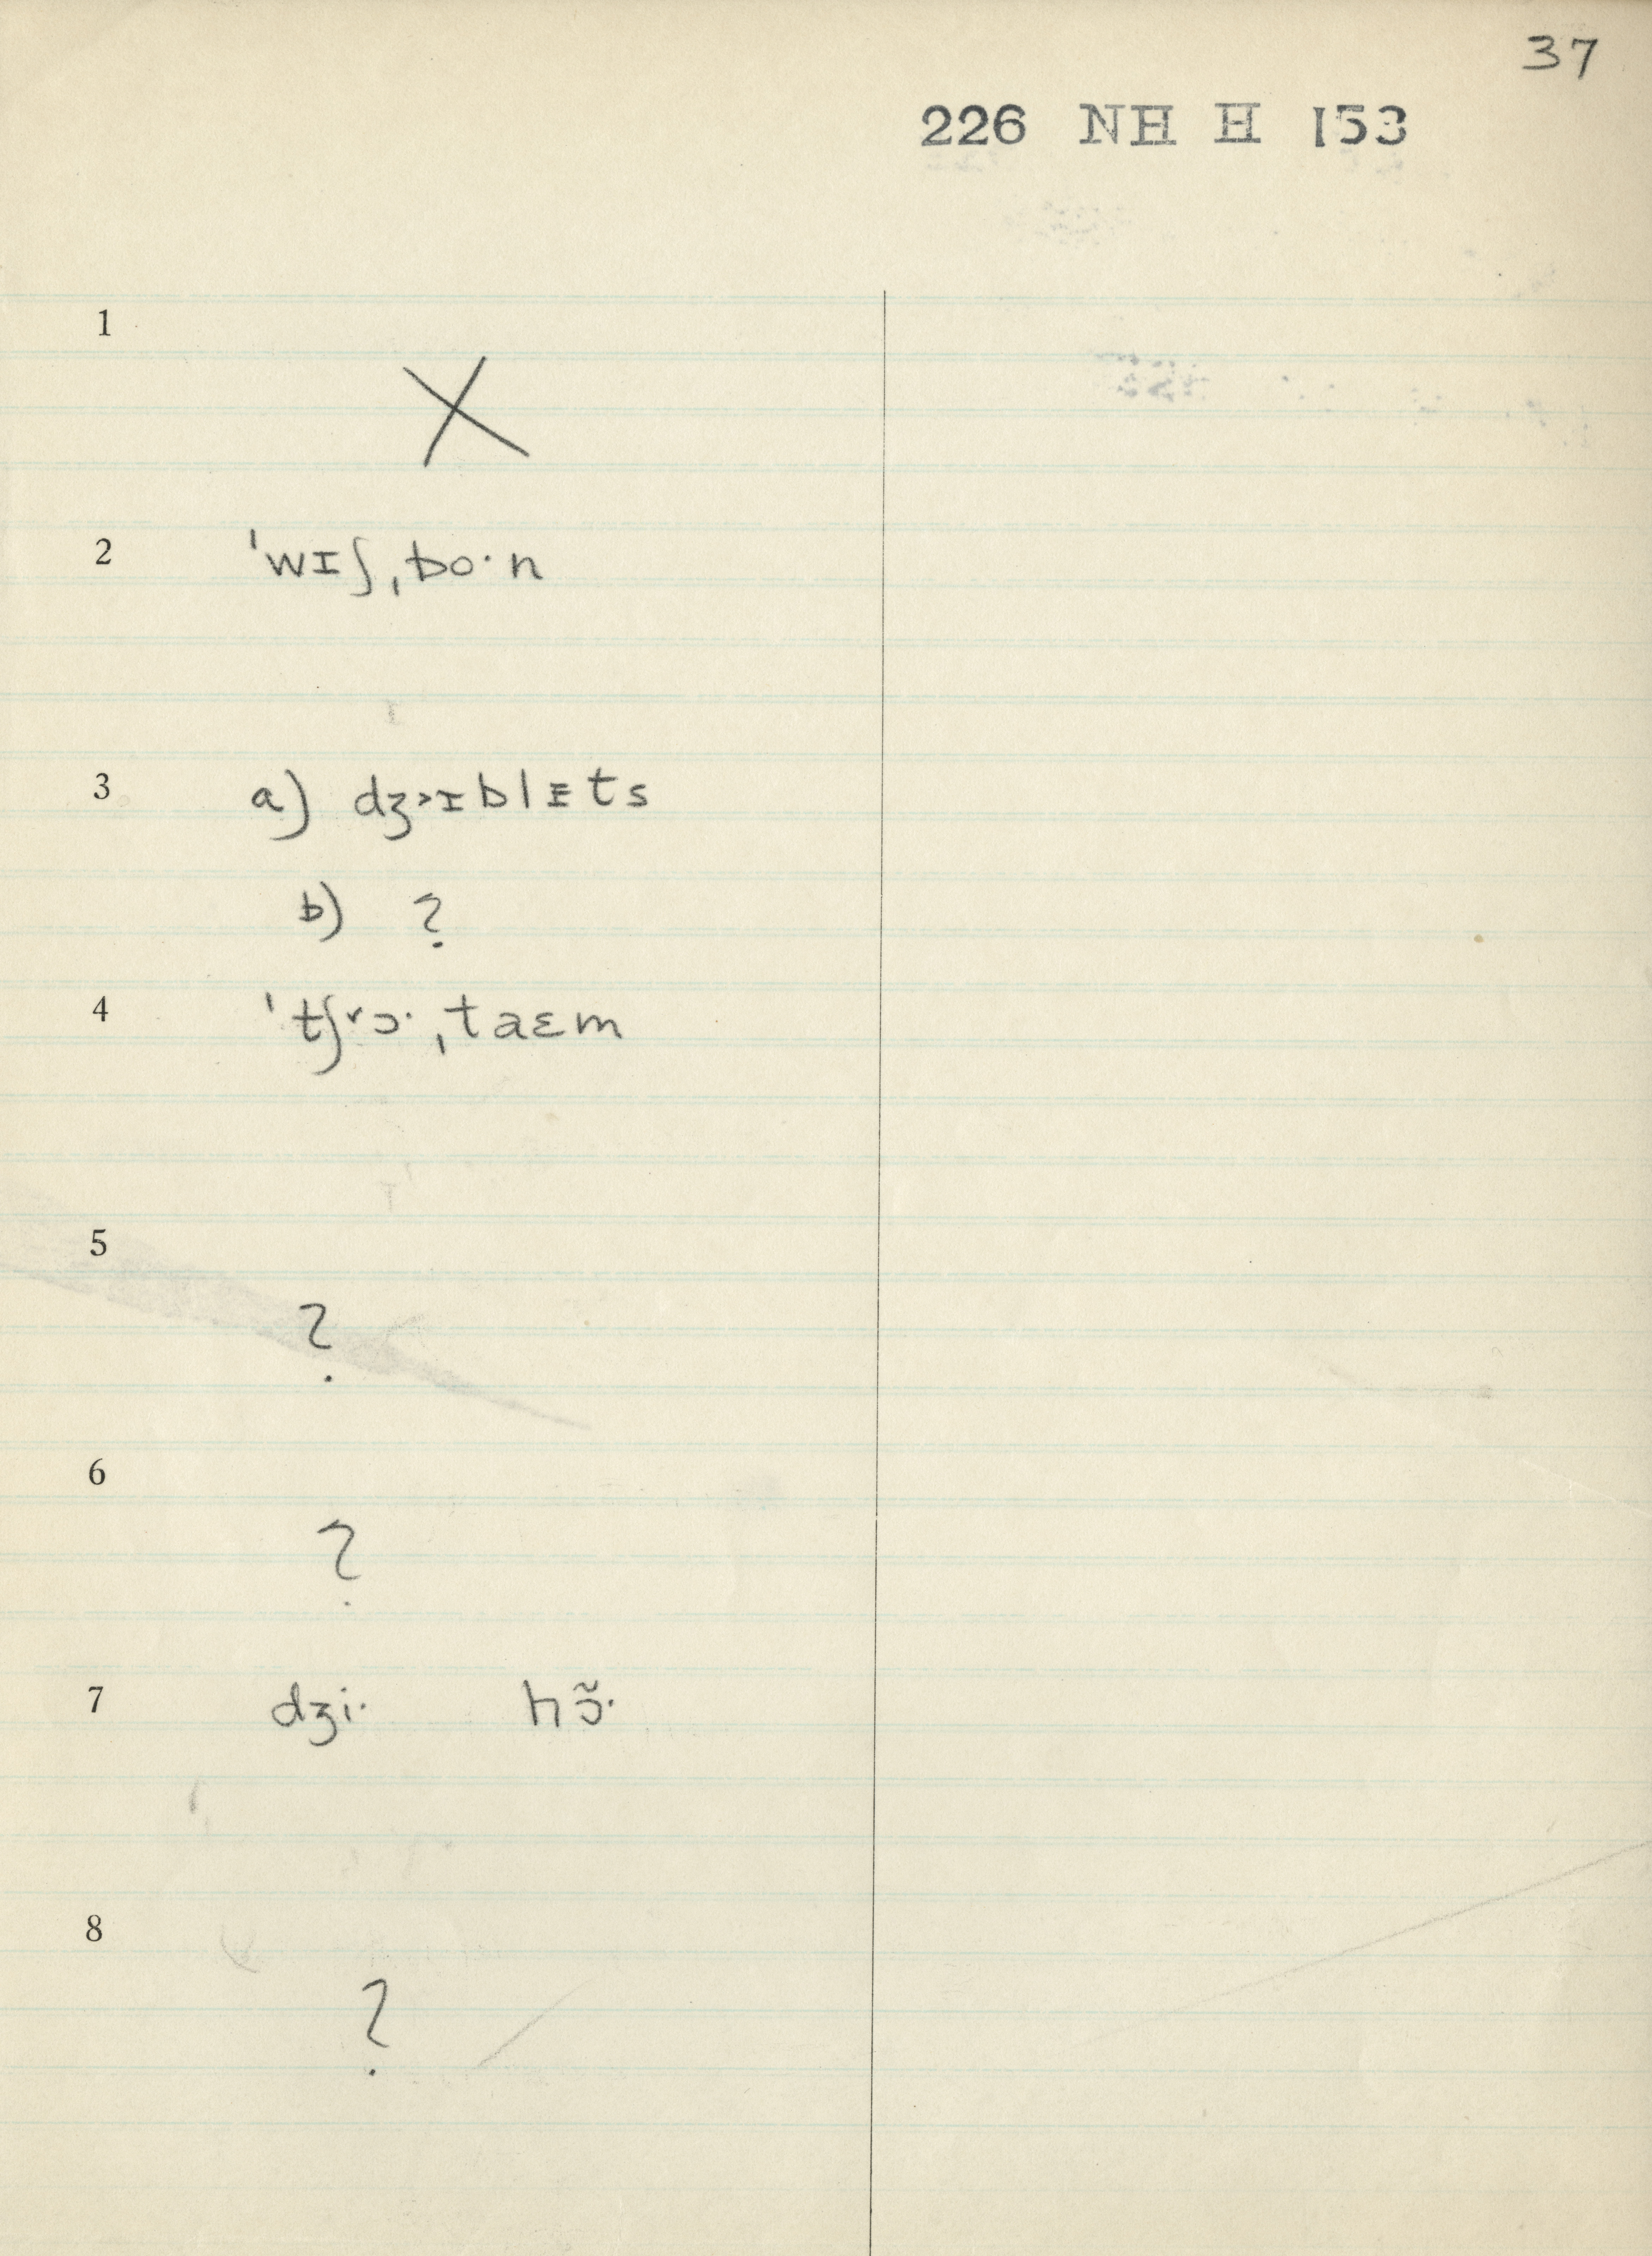 37
226 NH H 153
1
X
2 ˈwɪʃˌbo·n
3 a) dʒ˃ɪblᵻts
b) ?
4 ˈtʃ˅ɔ·ˌtaɛm
5
?
6
?
7 dʒi· hɔ̃·
8
?